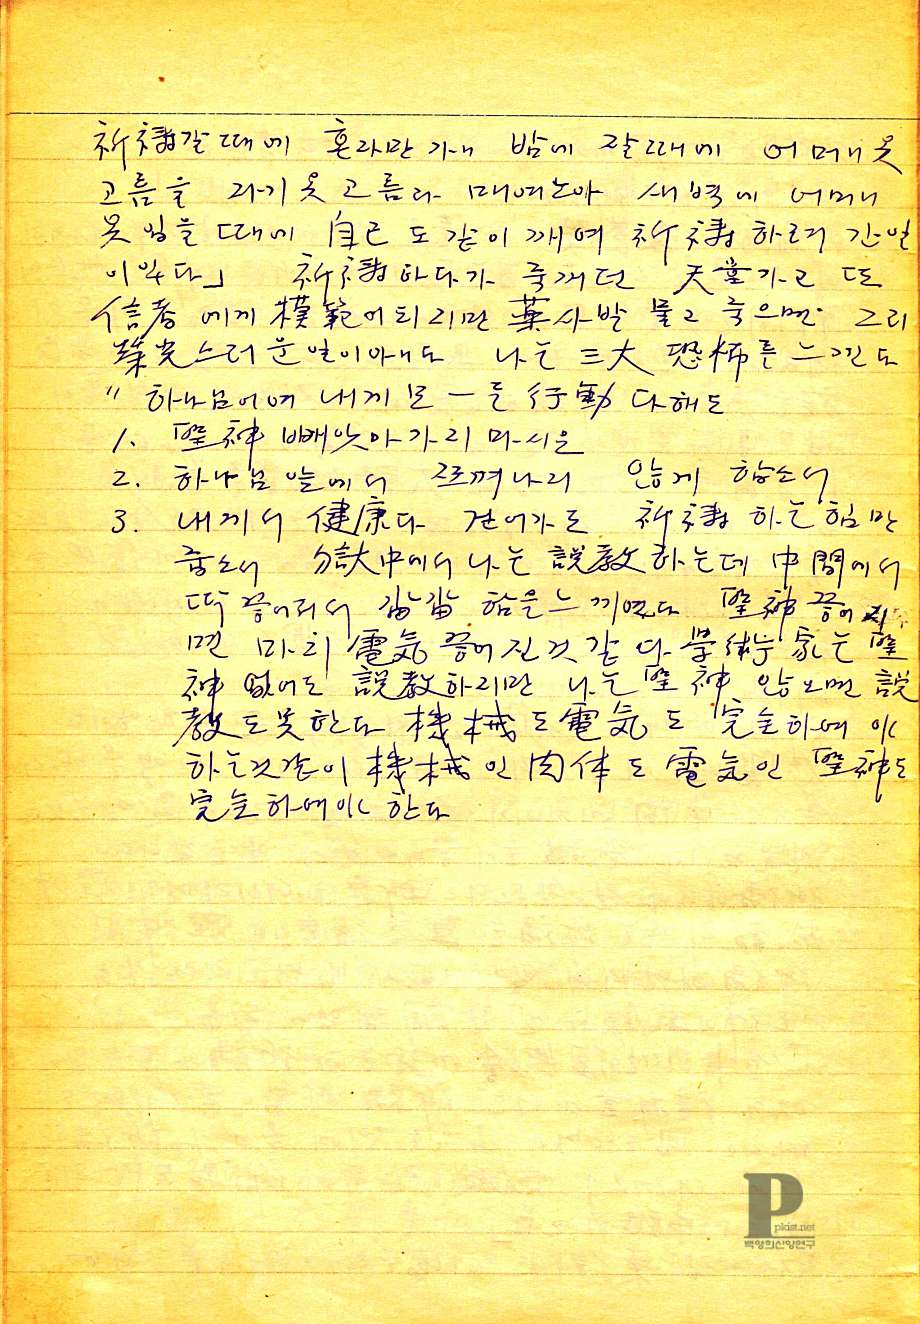 祈禱갈때에 혼자만가매 밤에 잘때에 어머니옷
고름을 자기옷고름과 매여놓아 새벽에 어머니
옷입을때에 自己도같이깨여 祈禱하려 간일
이있다」 祈禱하다가 죽게되면 天堂가고 또
信者에게 模範이되리만 藥사발 물고 죽으면 그리
榮光스러운일이아니다 나는 三大 恐怖를느낀다
〃 하나님이여 내게 모ー든 行動 다해도
1. 聖神 빼앗아가지 마시온
2. 하나님 앞에서 쪼껴나지 않게 합소서
3. 내게서 健康다 걷어가도 祈禱하는힘만
줍소서 獄中에서 나는 說敎하는데 中間에서
딱 끊어져서 갑갑 함을느끼였다 聖神끊어지
면 마치 電氣끊어진것같다 學術家는 聖
神없어도 說敎하리만 나는聖神 않오면 說
敎도못한다 機械도電氣도 完全하여야
하는것같이 機械인 肉体도 電氣인 聖神도
完全하여야 한다
P
pkist.net
백영희신앙연구